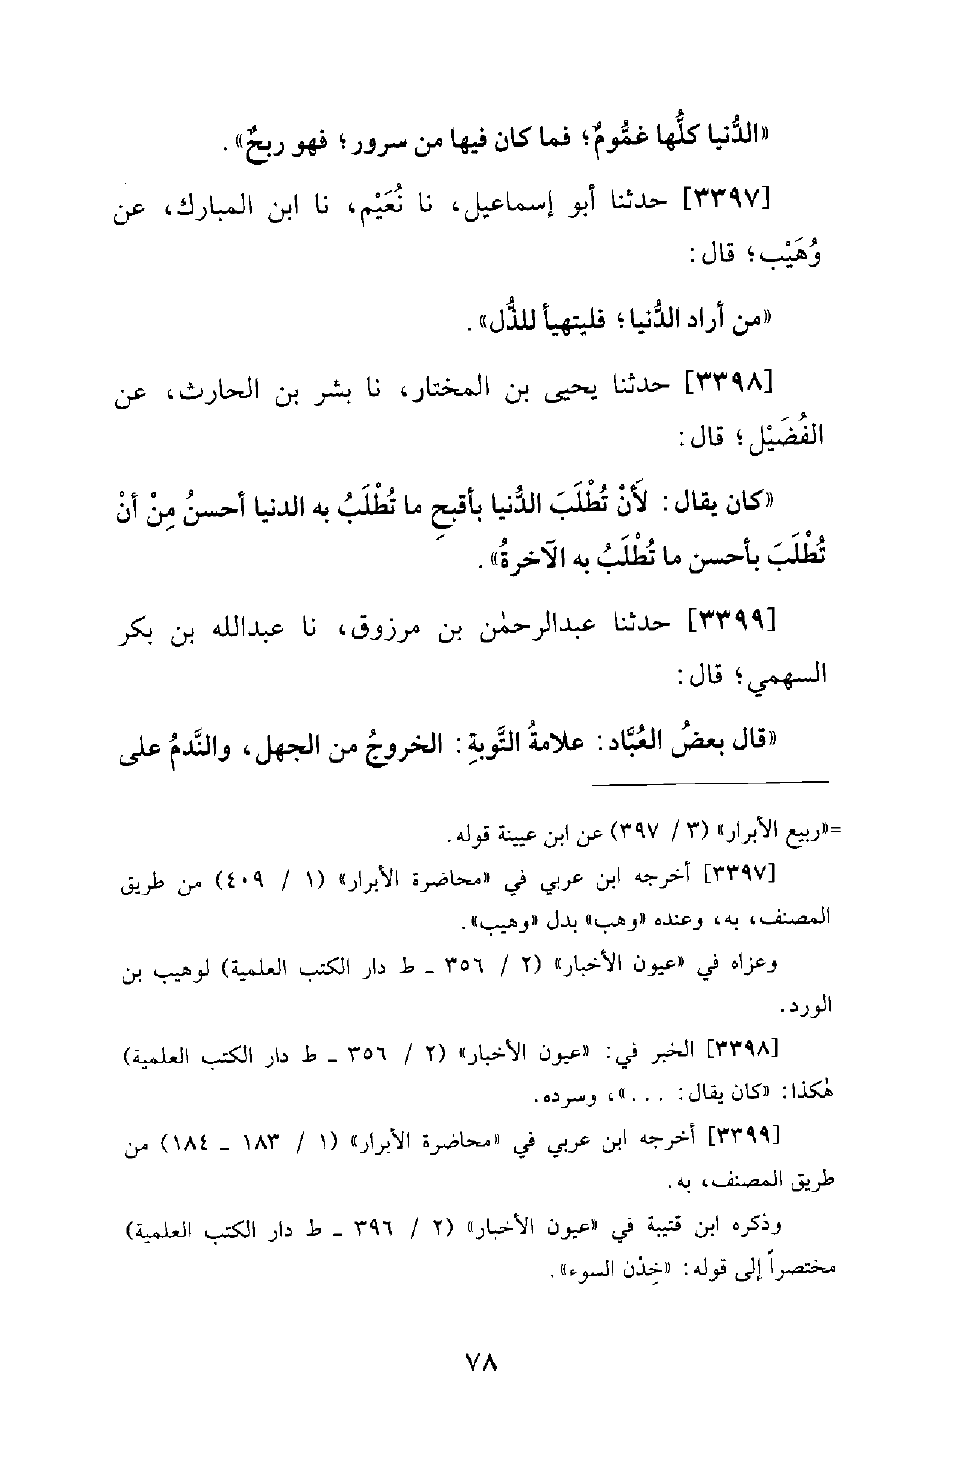 «الدُّنيا كلُّها غمُّومٌ؛ فما كان فيها من سرور؛ فهو ربحٌ».
[٣٣٩٧] حدثنا أبو إسماعيل، نا نُعَيْم، نا ابن المبارك، عن
وُهَيْب؛ قال:
«من أراد الدُّنيا؛ فليتهيأ للذُّل».
[٣٣٩٨] حدثنا يحيى بن المختار، نا بشر بن الحارث، عن
الفُضَيْل؛ قال:
«كان يقال: لَأَنْ تُطْلَبَ الدُّنيا بأقبحِ ما تُطْلَبُ به الدنيا أحسنُ مِنْ أنْ
تُطْلَبَ بأحسن ما تُطْلَبُ به الآخرةُ».
[٣٣٩٩] حدثنا عبدالرحمٰن بن مرزوق، نا عبدالله بن بكر
السهمي؛ قال:
«قال بعضُ العُبَّاد: علامةُ التَّوبةِ: الخروجُ من الجهل، والنَّدمُ على
=«ربيع الأبرار» (٣ / ٣٩٧) عن ابن عيينة قوله.
[٣٣٩٧] أخرجه ابن عربي في «محاضرة الأبرار» (١ / ٤٠٩) من طريق
المصنف، به، وعنده «وهب» بدل «وهيب».
وعزاه في «عيون الأخبار» (٢ / ٣٥٦ ـ ط دار الكتب العلمية) لوهيب بن
الورد.
[٣٣٩٨] الخبر في: «عيون الأخبار» (٢ / ٣٥٦ ـ ط دار الكتب العلمية)
هٰكذا: «كان يقال: ...»، وسرده.
[٣٣٩٩] أخرجه ابن عربي في «محاضرة الأبرار» (١ / ١٨٣ ـ ١٨٤) من
طريق المصنف، به.
وذكره ابن قتيبة في «عيون الأخبار» (٢ / ٣٩٦ ـ ط دار الكتب العلمية)
مختصراً إلى قوله: «خِدْن السوء».
٧٨